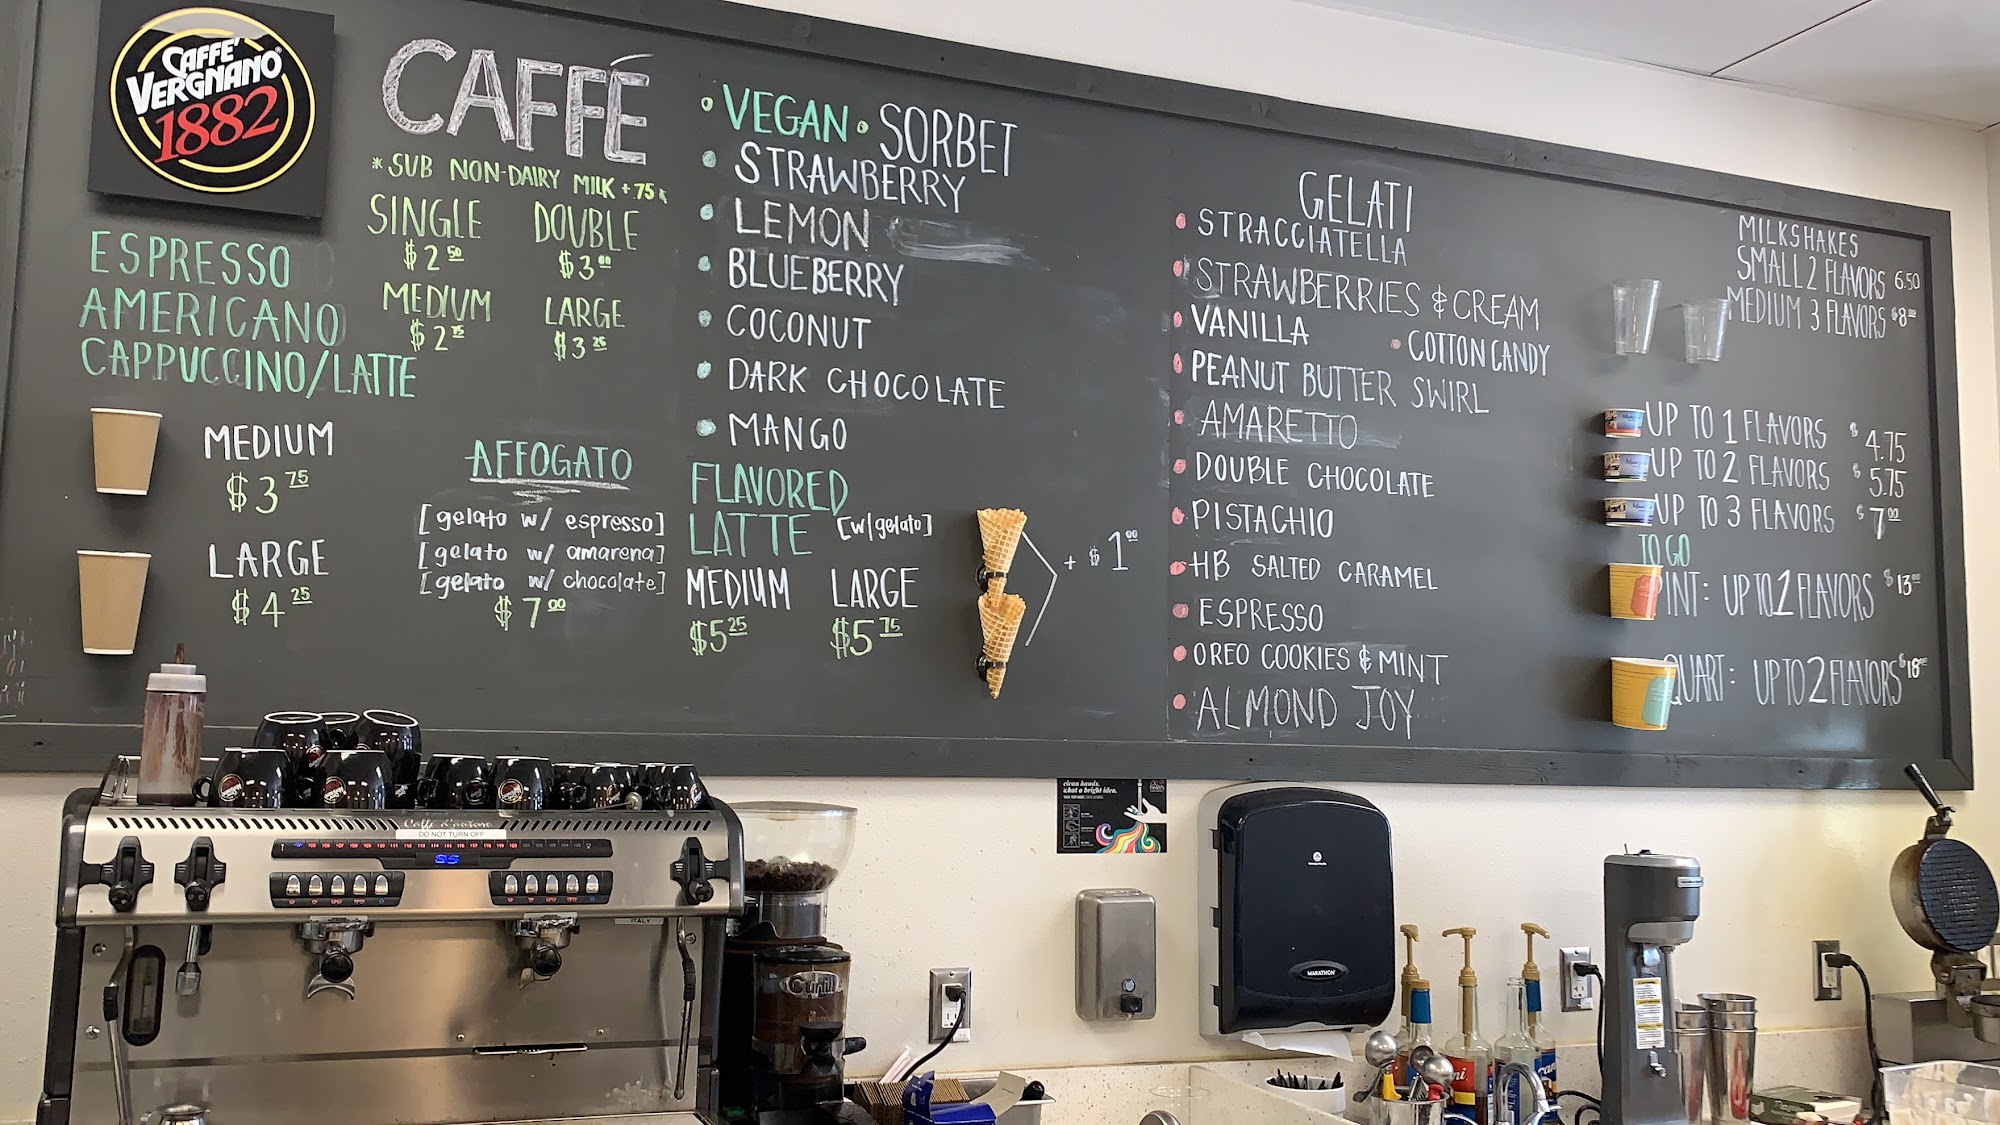 CAFFÈ
VERGNANO
1882
CAFFÉ
* SUB NON-DAIRY MILK + .75
SINGLE DOUBLE
$2.50 $3.00
ESPRESSO
MEDIUM LARGE
$2.75 $3.25
AMERICANO
CAPPUCCINO/LATTE
MEDIUM
$3.75
LARGE
$4.25
AFFOGATO
[gelato w/ espresso]
[gelato w/ amarena]
[gelato w/ chocolate]
$7.00
• VEGAN • SORBET
• STRAWBERRY
• LEMON
• BLUEBERRY
• COCONUT
• DARK CHOCOLATE
• MANGO
FLAVORED
LATTE [w/gelato]
MEDIUM LARGE
$5.25 $5.75
+ $1.00
GELATI
• STRACCIATELLA
• STRAWBERRIES & CREAM
• VANILLA
• COTTON CANDY
• PEANUT BUTTER SWIRL
• AMARETTO
• DOUBLE CHOCOLATE
• PISTACHIO
• HB SALTED CARAMEL
• ESPRESSO
• OREO COOKIES & MINT
• ALMOND JOY
MILKSHAKES
SMALL 2 FLAVORS 6.50
MEDIUM 3 FLAVORS $8.00
UP TO 1 FLAVORS $4.75
UP TO 2 FLAVORS $5.75
UP TO 3 FLAVORS $7.00
TO GO
PINT: UP TO 1 FLAVORS $13.00
QUART: UP TO 2 FLAVORS $18.00
DO NOT TURN OFF
ITALY
clean hands.
what a bright idea.
MARATHON